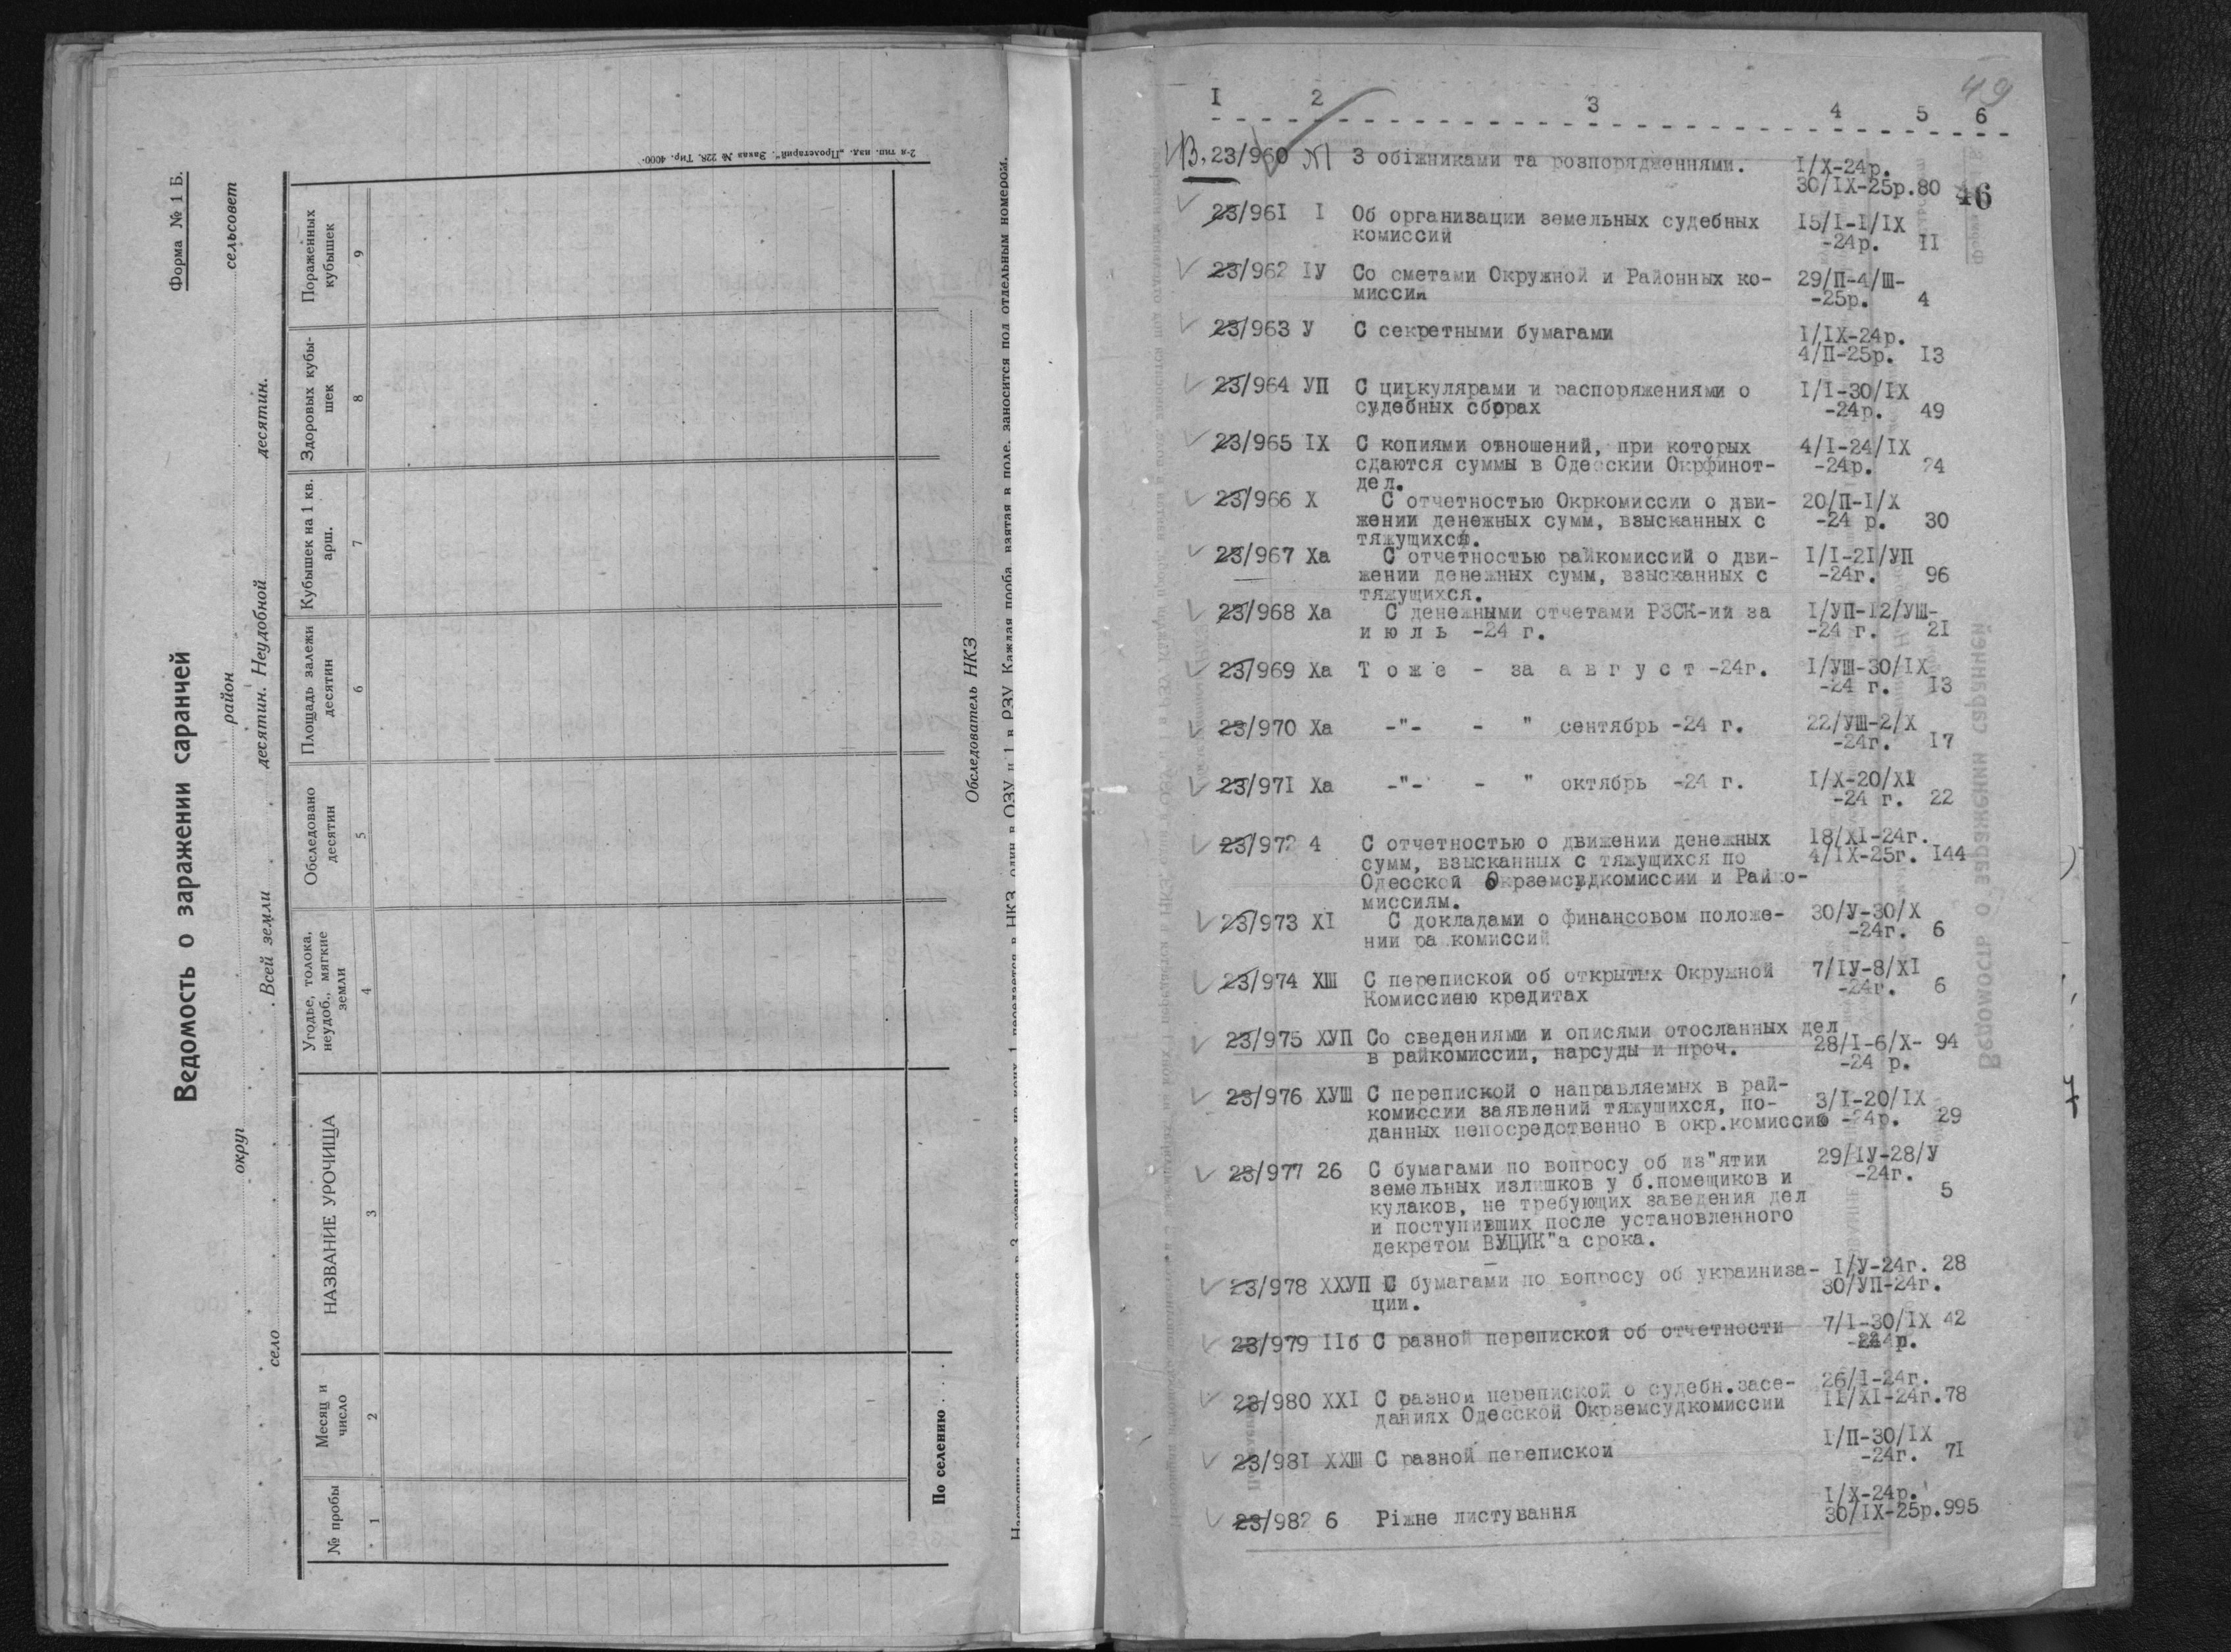 Форма № 1 Б.
Ведомость о заражении саранчей
округ район сельсовет
село Всей земли десятин. Неудобной десятин.
№ пробы
Месяц и число
НАЗВАНИЕ УРОЧИЩА
Угодье, толока, неудоб., мягкие земли
Обследовано десятин
Площадь залежи десятин
Кубышек на 1 кв. арш.
Здоровых кубышек
Пораженных кубышек
1 2 3 4 5 6 7 8 9
По селению . . . .
Обследователь НКЗ
Каждая проба, взятая в поле, заносится под отдельным номером.
2-я тип. изд. „Пролетарий“. Заказ № 228. Тир. 4000.
49
I 2 3 4 5 6
23/960 З обіжниками та розпорядженнями. I/X-24р.
30/IX-25р.80 46
23/961 I Об организации земельных судебных 15/I-I/IX
комиссий -24р. II
23/962 IУ Со сметами Окружной и Районных ко- 29/П-4/Ш-
миссий -25р. 4
23/963 У С секретными бумагами I/IX-24р.
4/П-25р. I3
23/964 УП С циркулярами и распоряжениями о I/I-30/IX
судебных сборах -24р. 49
23/965 IX С копиями отношений, при которых 4/I-24/IX
сдаются суммы в Одесский Окрфинот- -24р. 24
дел.
23/966 X С отчетностью Окркомиссии о дви- 20/П-I/X
жении денежных сумм, взысканных с -24 р. 30
тяжущихся.
23/967 Ха С отчетностью райкомиссий о дви- I/I-2I/УП
жении денежных сумм, взысканных с -24г. 96
тяжущихся.
23/968 Ха С денежными отчетами РЗСК-ий за I/УП-I2/УШ-
и ю л ь -24 г. -24 г. 2I
23/969 Ха Т о ж е - за а в г у с т -24г. I/УШ-30/IX
-24 г. I3
23/970 Ха -"- - " сентябрь -24 г. 22/УШ-2/X
-24г. I7
23/971 Ха -"- - " октябрь -24 г. I/X-20/XI
-24 г. 22
23/972 4 С отчетностью о движении денежных I8/XI-24г.
сумм, взысканных с тяжущихся по 4/IX-25г. I44
Одесской Окрземсудкомиссии и Райко-
миссиям.
23/973 XI С докладами о финансовом положе- 30/У-30/X
нии ра комиссий -24г. 6
23/974 ХШ С перепиской об открытых Окружной 7/IУ-8/XI
Комиссиею кредитах -24г. 6
23/975 ХУП Со сведениями и описями отосланных дел
в райкомиссии, нарсуды и проч. 28/I-6/X- 94
-24 р.
23/976 ХУШ С перепиской о направляемых в рай-
комиссии заявлений тяжущихся, по- 3/I-20/IX
данных непосредственно в окр.комиссию -24р. 29
23/977 26 С бумагами по вопросу об из"ятии 29/IУ-28/У
земельных излишков у б.помещиков и -24г.
кулаков, не требующих заведения дел 5
и поступивших после установленного
декретом ВУЦИК"а срока.
23/978 ХХУП С бумагами по вопросу об украиниза- I/У-24г. 28
ции. 30/УП-24г.
23/979 IIб С разной перепиской об отчетности 7/I-30/IX 42
-24р.
23/980 XXI С разной перепиской о судебн.засе- 26/I-24г.
даниях Одесской Окрземсудкомиссии II/XI-24г.78
23/981 ХХШ С разной перепиской I/П-30/IX
-24г. 7I
23/982 6 Ріжне листування I/X-24р.
30/IX-25р.995